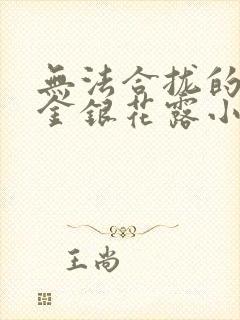 無法合拢的
金銀花露小
王尚